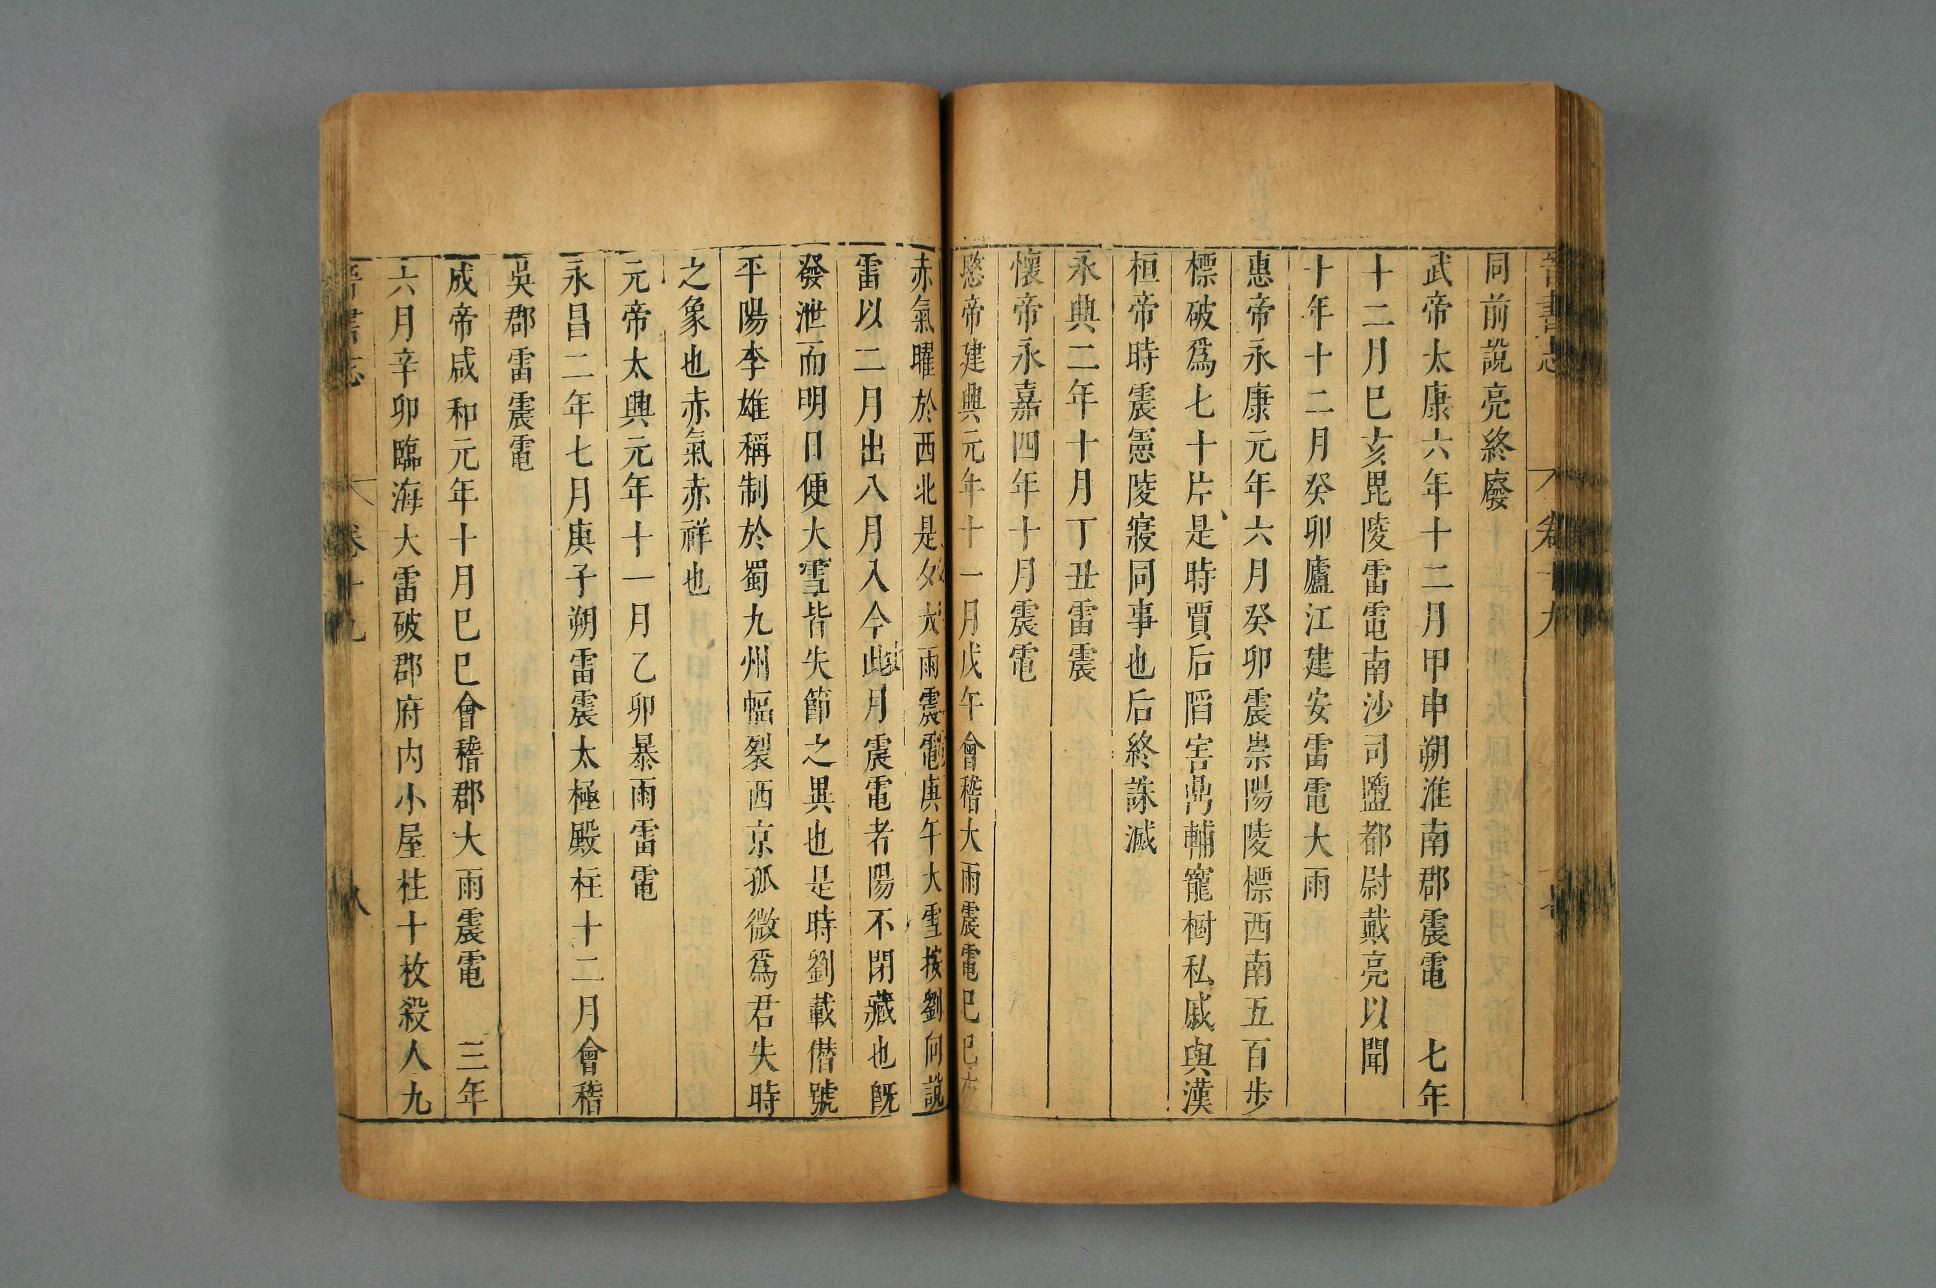 晉書志 卷十九
同前說亮終廢
武帝太康六年十二月甲申朔淮南郡震電 七年
十二月巳亥毘陵雷電南沙司鹽都尉戴亮以聞
十年十二月癸卯廬江建安雷電大雨
惠帝永康元年六月癸卯震崇陽陵標西南五百步
標破爲七十片是時賈后陷害鼎輔寵樹私戚與漢
桓帝時震憲陵寢同事也后終誅滅
永興二年十月丁丑雷震
懷帝永嘉四年十月震電
愍帝建興元年十一月戊午會稽大雨震電巳巳夜
赤氣曜於西北是夕大雨震電庚午大雪按劉向說
雷以二月出八月入今此月震電者陽不閉藏也旣
發泄而明日便大雪皆失節之異也是時劉載僭號
平陽李雄稱制於蜀九州幅裂西京孤微爲君失時
之象也赤氣赤祥也
元帝太興元年十一月乙卯暴雨雷電
永昌二年七月庚子朔雷震太極殿柱十二月會稽
吳郡雷震電
成帝咸和元年十月巳巳會稽郡大雨震電 三年
六月辛卯臨海大雷破郡府內小屋柱十枚殺人九
晉書志 卷十九 八